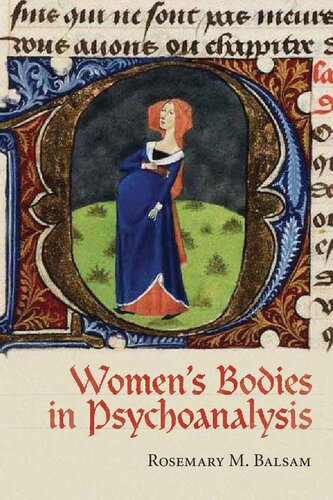 suis qui ne sont pas
nous auons ou chapitre
Women's Bodies
in Psychoanalysis
Rosemary M. Balsam